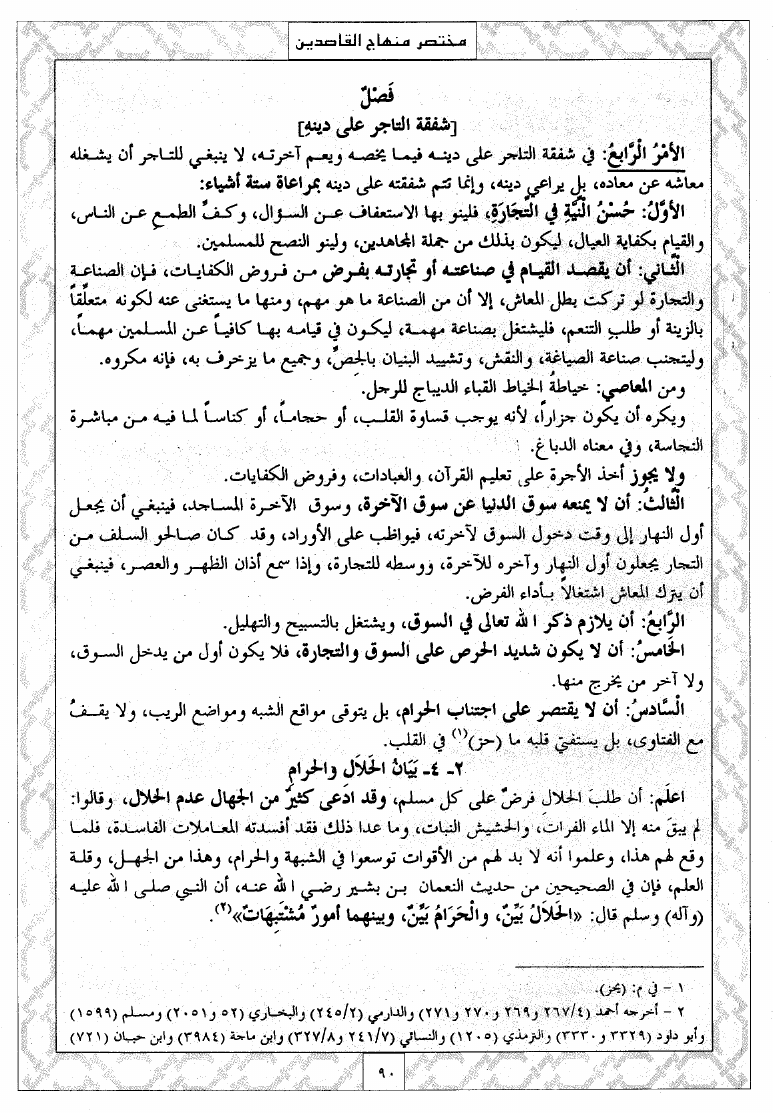 مختصر منهاج القاصدين
فَصْلٌ
[شفقة التاجر على دينه]
الأمْرُ الْرَّابِعُ: في شفقة التاجر على دينه فيما يخصه ويعم آخرته، لا ينبغي للتاجر أن يشغله
معاشه عن معاده، بل يراعي دينه، وإنما تتم شفقته على دينه بمراعاة ستة أشياء:
الأوَّلُ: حُسْنُ الْنِّيَّةِ في الْتِّجَارَةِ، فلينو بها الاستعفاف عن السؤال، وكفَّ الطمع عن الناس،
والقيام بكفاية العيال، ليكون بذلك من جملة المجاهدين، ولينو النصح للمسلمين.
الْثَّاني: أن يقصد القيام في صناعته أو تجارته بفرض من فروض الكفايات، فإن الصناعة
والتجارة لو تركت بطل المعاش، إلا أن من الصناعة ما هو مهم، ومنها ما يستغنى عنه لكونه متعلِّقاً
بالزينة أو طلب التنعم، فليشتغل بصناعة مهمة، ليكون في قيامه بها كافياً عن المسلمين مهماً،
وليتجنب صناعة الصياغة، والنقش، وتشييد البنيان بالجص، وجميع ما يزخرف به، فإنه مكروه.
ومن المعاصي: خياطةُ الخياط القباء الديباج للرجل.
ويكره أن يكون جزاراً، لأنه يوجب قساوة القلب، أو حجاماً، أو كناساً لما فيه من مباشرة
النجاسة، وفي معناه الدباغ.
ولا يجوز أخذ الأجرة على تعليم القرآن، والعبادات، وفروض الكفايات.
الْثَّالثُ: أن لا يمنعه سوق الدنيا عن سوق الآخرة، وسوق الآخرة المساجد، فينبغي أن يجعل
أول النهار إلى وقت دخول السوق لآخرته، فيواظب على الأوراد، وقد كان صالحو السلف من
التجار يجعلون أول النهار وآخره للآخرة، ووسطه للتجارة، وإذا سمع أذان الظهر والعصر، فينبغي
أن يترك المعاش اشتغالاً بأداء الفرض.
الرَّابعُ: أن يلازم ذكر الله تعالى في السوق، ويشتغل بالتسبيح والتهليل.
الخامسُ: أن لا يكون شديد الحرص على السوق والتجارة، فلا يكون أول من يدخل السوق،
ولا آخر من يخرج منها.
الْسَّادسُ: أن لا يقتصر على اجتناب الحرام، بل يتوقى مواقع الشبه ومواضع الريب، ولا يقفُ
مع الفتاوى، بل يستفتي قلبه ما (حز)(١) في القلب.
٢ـ ٤ـ بَيَانُ الحَلَالِ والحرامِ
اعلَم: أن طلبَ الحلالِ فرضٌ على كل مسلم، وقد ادَّعى كثيرٌ من الجهال عدم الحلال، وقالوا:
لم يبقَ منه إلا الماء الفرات، والحشيش النبات، وما عدا ذلك فقد أفسدته المعاملات الفاسدة، فلما
وقع لهم هذا، وعلموا أنه لا بد لهم من الأقوات توسعوا في الشبهة والحرام، وهذا من الجهل، وقلة
العلم، فإن في الصحيحين من حديث النعمان بن بشير رضي الله عنه، أن النبي صلى الله عليه
(وآله) وسلم قال: «الحَلاَلُ بَيِّنٌ، والْحَرَامُ بَيِّنٌ، وبينهما أمورٌ مُشْتَبِهَاتٌ»(٢).
١ - في م: (يحز).
٢ - أخرجه أحمد (٢٦٧/٤ و٢٦٩ و٢٧٠ و٢٧١) والدارمي (٢٤٥/٢) والبخاري (٥٢ و٢٠٥١) ومسلم (١٥٩٩)
وأبو داود (٣٣٢٩ و٣٣٣٠) والترمذي (١٢٠٥) والنسائي (٢٤١/٧ و٣٢٧/٨) وابن ماجة (٣٩٨٤) وابن حبان (٧٢١)
٩٠